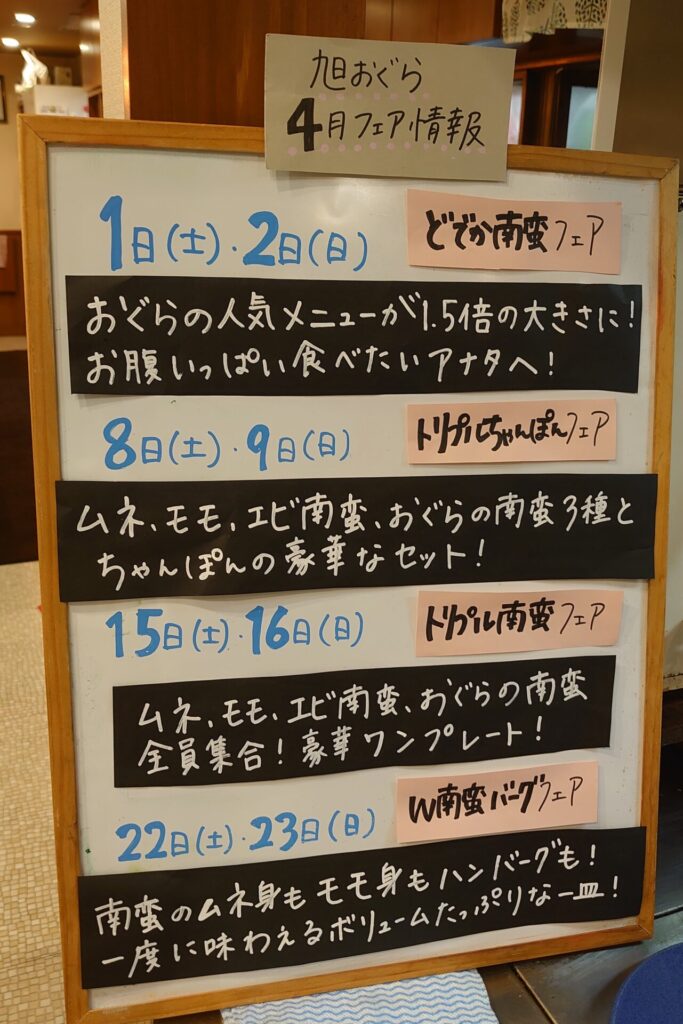 旭おぐら
4月フェア情報
1日(土)・2日(日)
どでか南蛮フェア
おぐらの人気メニューが1.5倍の大きさに!
お腹いっぱい食べたいアナタへ!
8日(土)・9日(日)
トリプルちゃんぽんフェア
ムネ、モモ、エビ南蛮、おぐらの南蛮3種と
ちゃんぽんの豪華なセット!
15日(土)・16日(日)
トリプル南蛮フェア
ムネ、モモ、エビ南蛮、おぐらの南蛮
全員集合!豪華ワンプレート!
22日(土)・23日(日)
W南蛮バーグフェア
南蛮のムネ身もモモ身もハンバーグも!
一度に味わえるボリュームたっぷりな一皿!